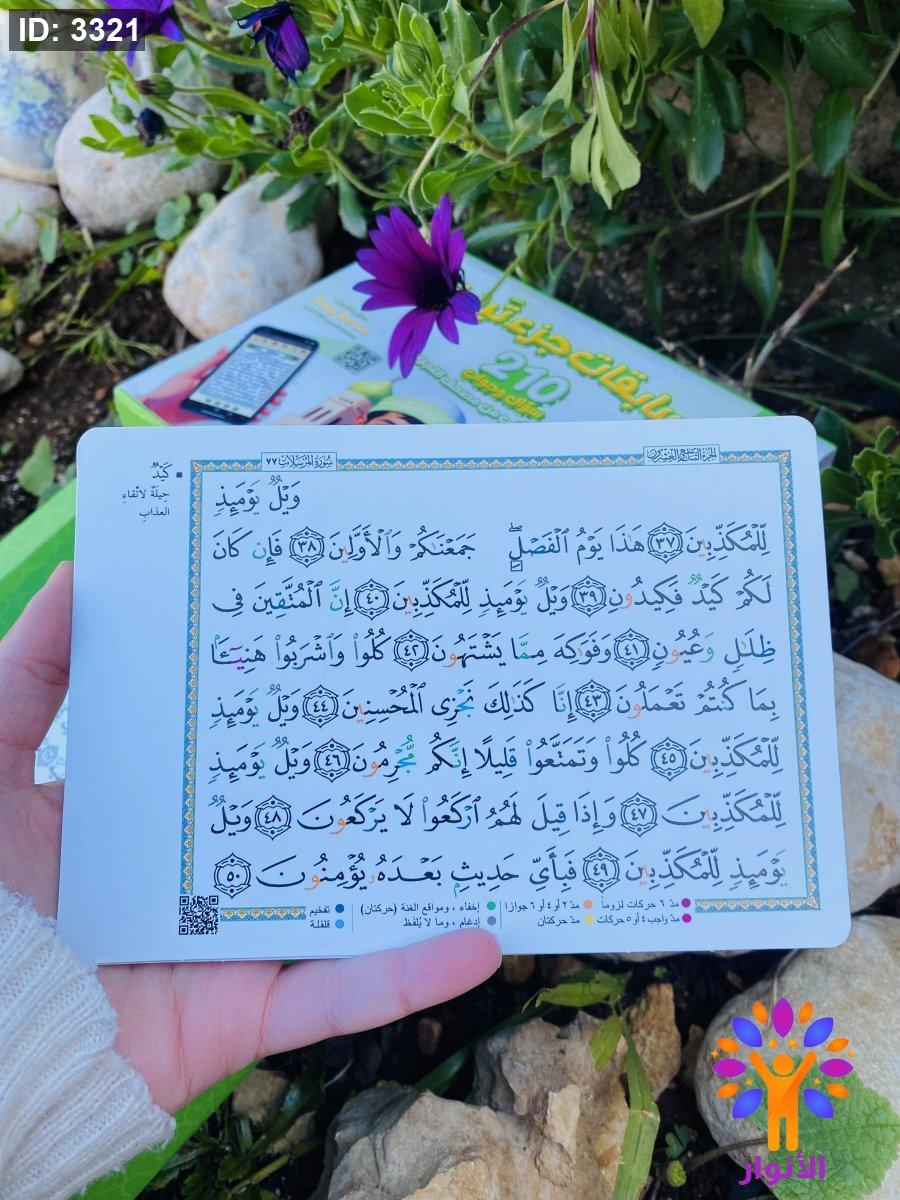 ID: 3321
مسابقات جزء تبا
210
سؤال وجواب
الجزء التاسع والعشرون
سورة المرسلات ٧٧
كَيْدٌ
حِيلَةٌ لاتِّقاءِ
العذاب
وَيْلٌ يَوْمَئِذٍ
لِّلْمُكَذِّبِينَ ٣٧ هَٰذَا يَوْمُ ٱلْفَصْلِ ۖ جَمَعْنَٰكُمْ وَٱلْأَوَّلِينَ ٣٨ فَإِن كَانَ
لَكُمْ كَيْدٌ فَكِيدُونِ ٣٩ وَيْلٌ يَوْمَئِذٍ لِّلْمُكَذِّبِينَ ٤٠ إِنَّ ٱلْمُتَّقِينَ فِى
ظِلَٰلٍ وَعُيُونٍ ٤١ وَفَوَٰكِهَ مِمَّا يَشْتَهُونَ ٤٢ كُلُوا۟ وَٱشْرَبُوا۟ هَنِيٓـًٔا
بِمَا كُنتُمْ تَعْمَلُونَ ٤٣ إِنَّا كَذَٰلِكَ نَجْزِى ٱلْمُحْسِنِينَ ٤٤ وَيْلٌ يَوْمَئِذٍ
لِّلْمُكَذِّبِينَ ٤٥ كُلُوا۟ وَتَمَتَّعُوا۟ قَلِيلًا إِنَّكُم مُّجْرِمُونَ ٤٦ وَيْلٌ يَوْمَئِذٍ
لِّلْمُكَذِّبِينَ ٤٧ وَإِذَا قِيلَ لَهُمُ ٱرْكَعُوا۟ لَا يَرْكَعُونَ ٤٨ وَيْلٌ
يَوْمَئِذٍ لِّلْمُكَذِّبِينَ ٤٩ فَبِأَىِّ حَدِيثٍۭ بَعْدَهُۥ يُؤْمِنُونَ ٥٠
مدّ ٦ حركات لزوماً مدّ ٢ أو ٤ أو ٦ جوازاً إخفاء ، ومواقع الغنة (حركتان) تفخيم
مدّ واجب ٤ أو ٥ حركات مدّ حركتان إدغام ، وما لا يُلفظ قلقلة
الأنوار